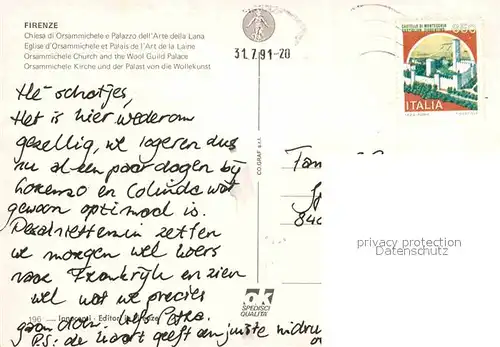 FIRENZE
Chiesa di Orsammichele e Palazzo dell'Arte della Lana
Eglise d'Orsammichele et Palais de l'Art de la Laine
Orsammichele Church and the Wool Guild Palace
Orsammichele Kirche und der Palast von die Wollekunst
31.7.91-20
CASTELLO DI MONTECCHIO
850
ITALIA
Hé schatjes,
Het is hier wederom
gezellig, we logeren dus
nu al een paar dagen bij
Lorenzo en Colinda wat
gewoon optimaal is.
Desalniettemin zetten
we morgen wel koers
naar Frankrijk en zien
wel wat we precies
gaan doen. Liefs
P.S: de kaart geeft een juiste indruk
Fam
840
CO.GRAF s.r.l.
privacy protection
Datenschutz
196 - Innocenti - Editore
ok
SPEDISCI
QUALITÀ